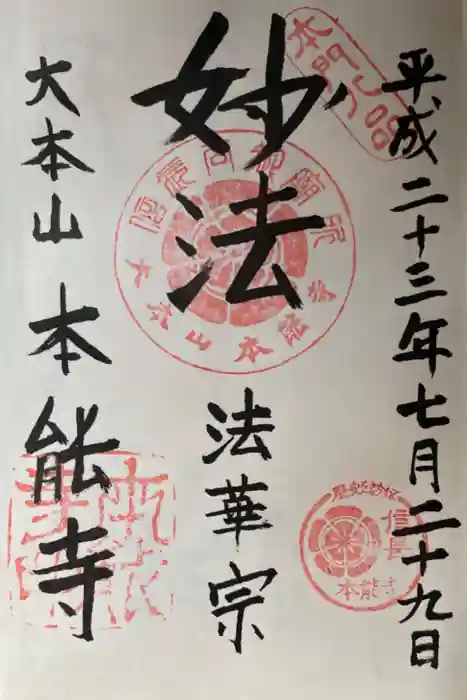 平成二十三年七月二十九日
本門八品
妙法
信長公御廟所
大本山本能寺
法華宗
信長
本能寺
大本山 本能寺